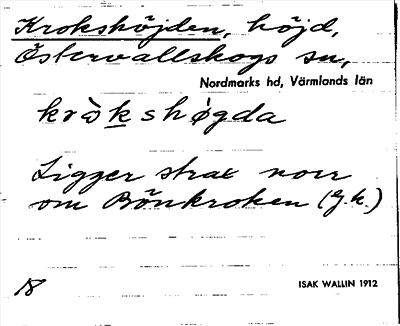 Krokshöjden, höjd,
Östervallskogs sn,
Nordmarks hd, Värmlands län
kròkshøgda
Ligger strax norr
om Bönkroken (g.k.)
18
ISAK WALLIN 1912